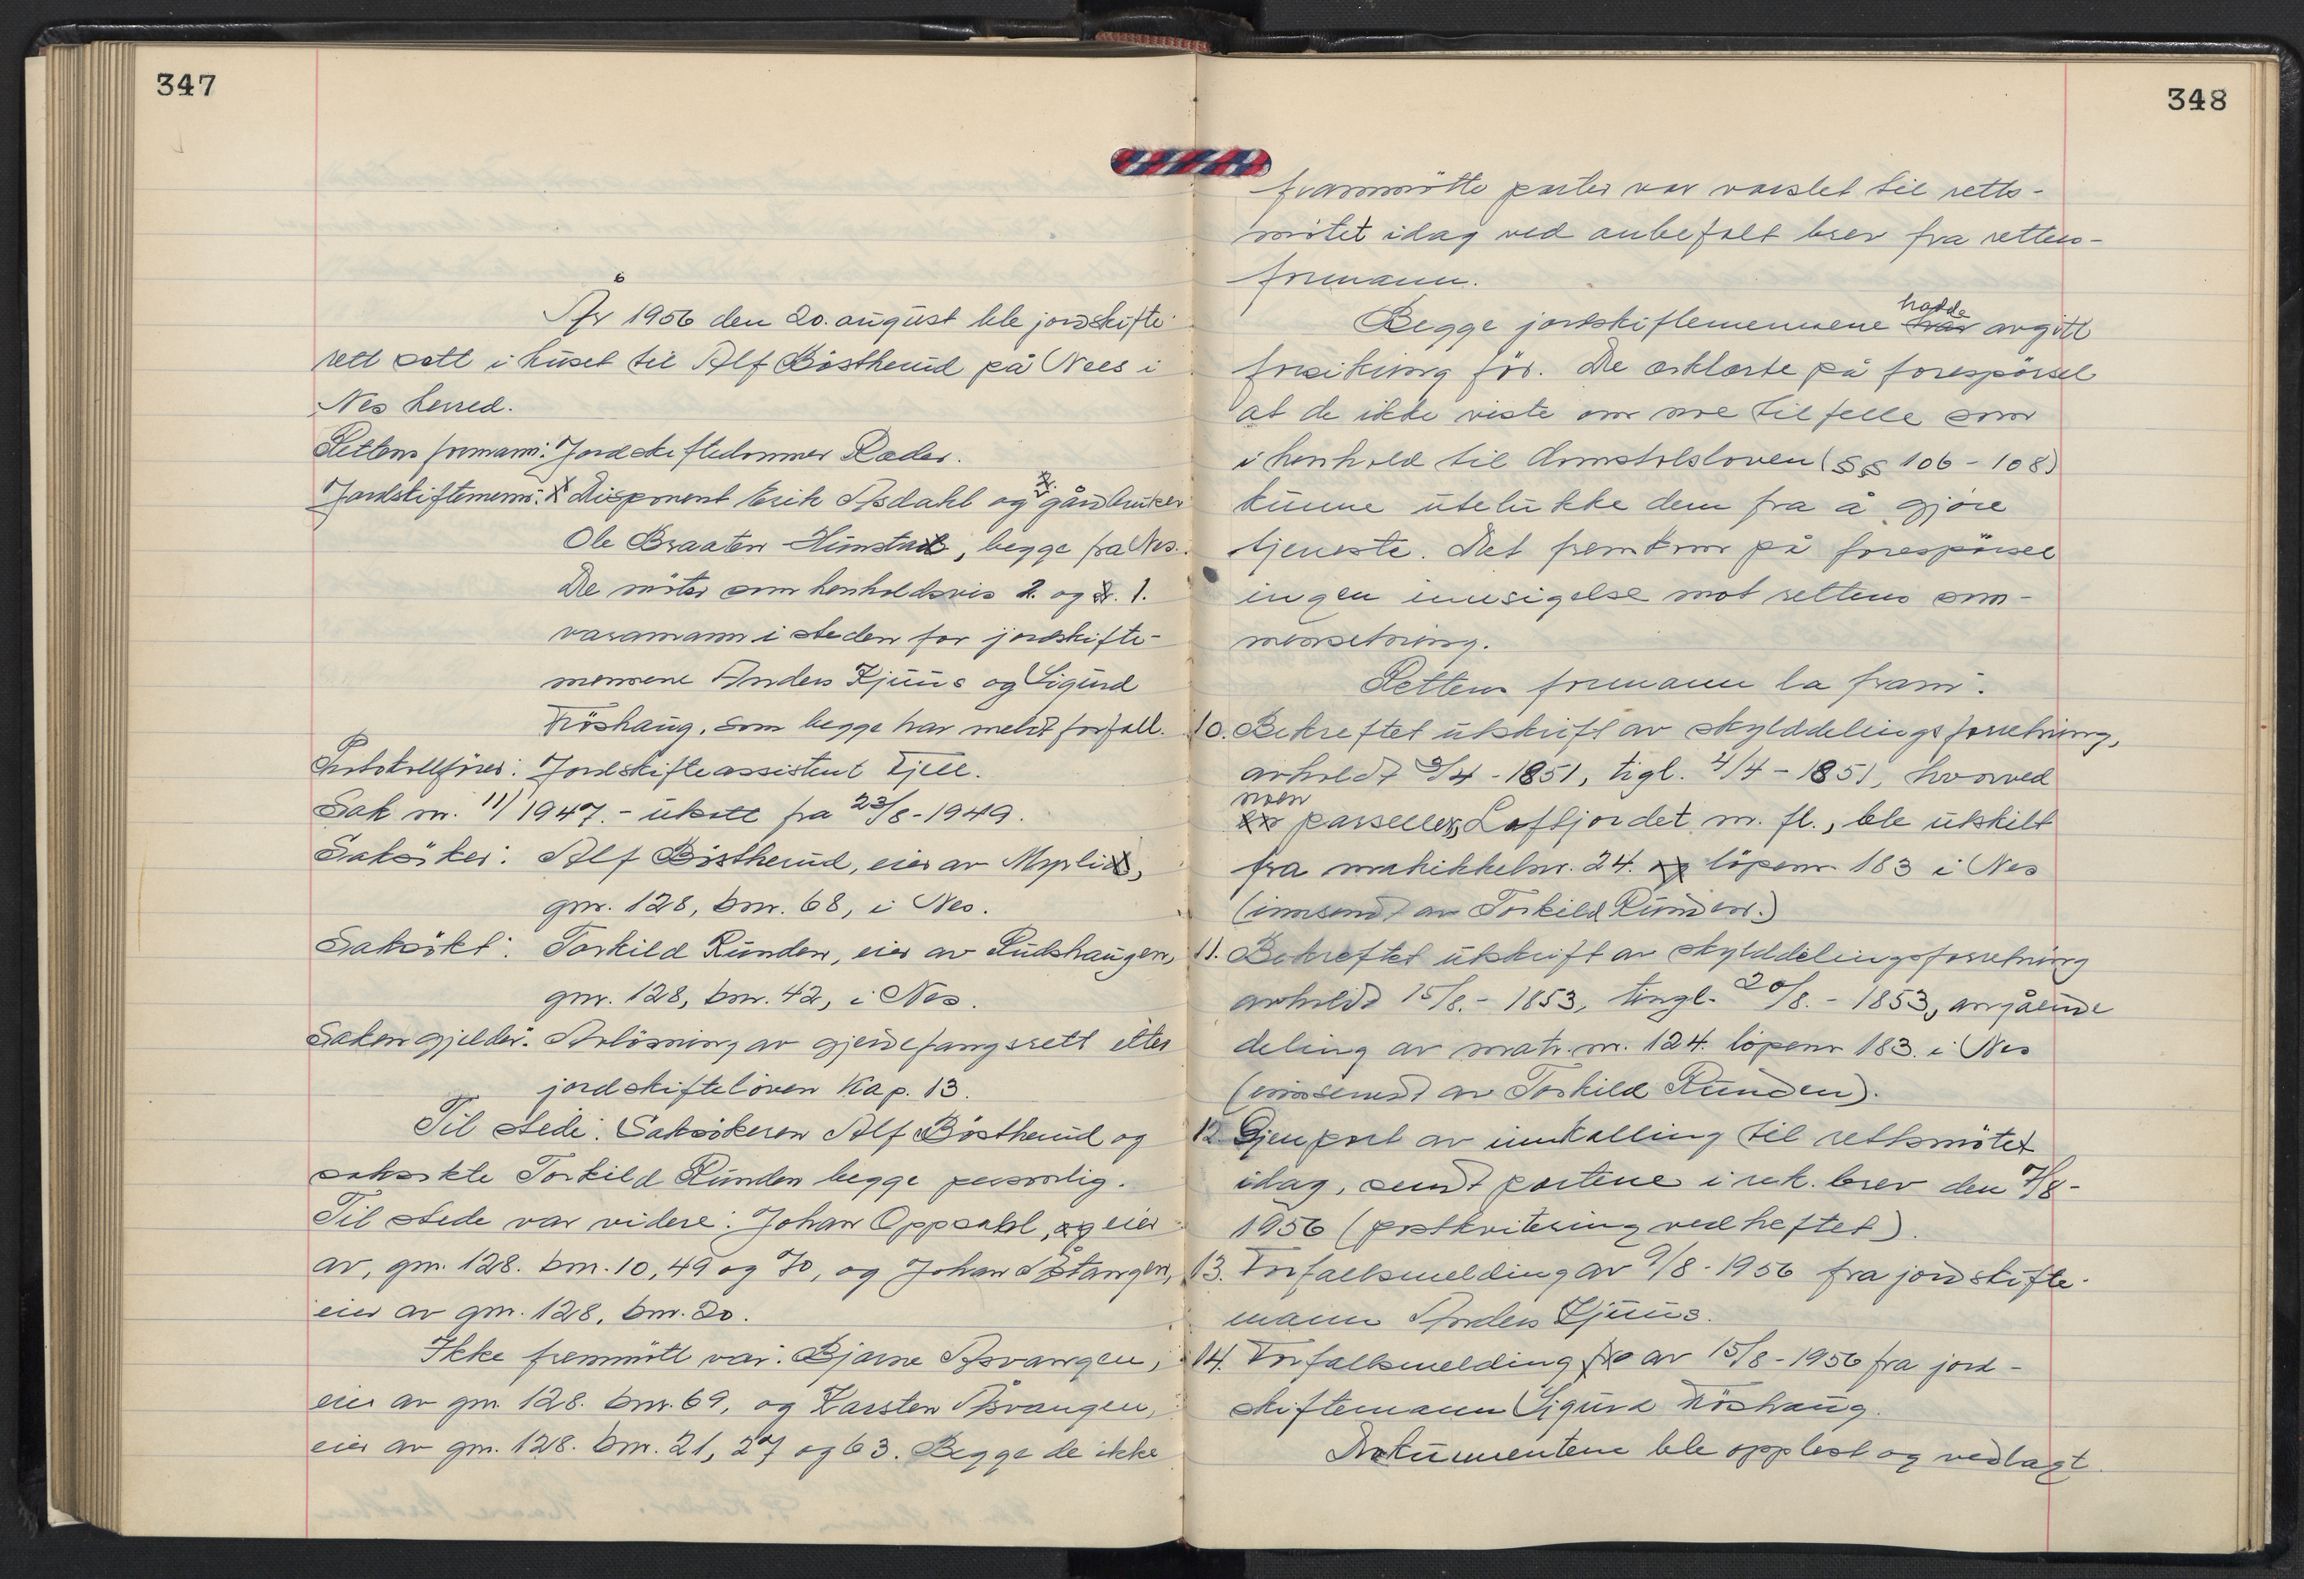 347
År 1956 den 20. august ble jordskifte-
rett satt i huset til Alf Böstherud på Nees i
Nes herred.
Rettens formann: Jordskiftedommer Ræder.
Jordskiftemenn: Disponent Erik Asdahl og gårdbruker
Ole Braaten Himstad, begge fra Nes.
De möter som henholdsvis 2. og 1.
varamann i steden for jordskifte-
mennene Anders Kjuus og Sigurd
Fröshaug, som begge har meldt forfall.
Protokollförer: Jordskifteassistent Fjell.
Sak nr. 11/1947. - utsatt fra 23/8-1949.
Saksöker: Alf Böstherud, eier av Myrli,
gnr. 128, bnr. 68, i Nes.
Saksökt: Torkild Runden, eier av Rudshaugen,
gnr. 128, bnr. 42, i Nes.
Saken gjelder: Avlösning av gjerdefangsrett etter
jordskifteloven Kap. 13.
Til stede: Saksökeren Alf Böstherud og
saksökte Torkild Runden begge personlig.
Til stede var videre: Johan Oppsahl, eier
av, gnr. 128. bnr. 10, 49 og 70, og Johan Stangen,
eier av gnr. 128, bnr. 20.
Ikke fremmött var: Bjarne Åsvangen,
eier av gnr. 128. bnr. 69, og Karsten Åsvangen,
eier av gnr. 128. bnr. 21, 27 og 63. Begge de ikke
348
frammötte parter var varslet til retts-
mötet idag ved anbefalt brev fra rettens-
formann.
Begge jordskiftemennene hadde avgitt
forsikring för. De erklærte på forespörsel
at de ikke viste om noe tilfelle som
i henhold til domstolsloven (§§ 106-108)
kunne utelukke dem fra å gjöre
tjeneste. Det fremkom på forespörsel
ingen innsigelse mot rettens som-
mensetning.
Rettens formann la fram:
10. Bekreftet utskrift av skylddelingsforretning,
avholdt 3/4-1851, tigl. 4/4-1851, hvorved
noen parseller, Loftjordet m. fl., ble utskilt
fra matrikkelnr. 24. löpenr 183 i Nes
(innsendt av Torkild Runden.)
11. Bekreftet utskrift av skylddelingsforretning
avholdt 15/8.-1853, tingl. 20/8.-1853, angående
deling av matr. nr. 124. löpenr 183. i Nes
(innsendt av Torkild Runden).
12. Gjenpart av innkalling til rettsmötet
idag, sendt partene i rek. brev den 7/8-
1956 (postkvitering vedheftet).
13. Forfallsmelding av 9/8-1956 fra jordskifte-
mann Anders Kjuus.
14. Forfallsmelding av 15/8-1956 fra jord-
skiftemann Sigurd Fröshaug.
Dokumentene ble opplest og vedlagt.